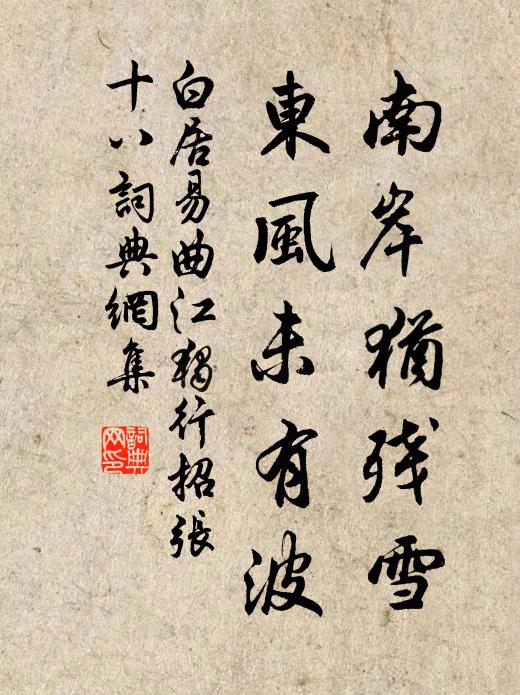 南岸猶残雪
東風未有波
白居易曲江獨行招張
十八詞典網集
詞典
网印